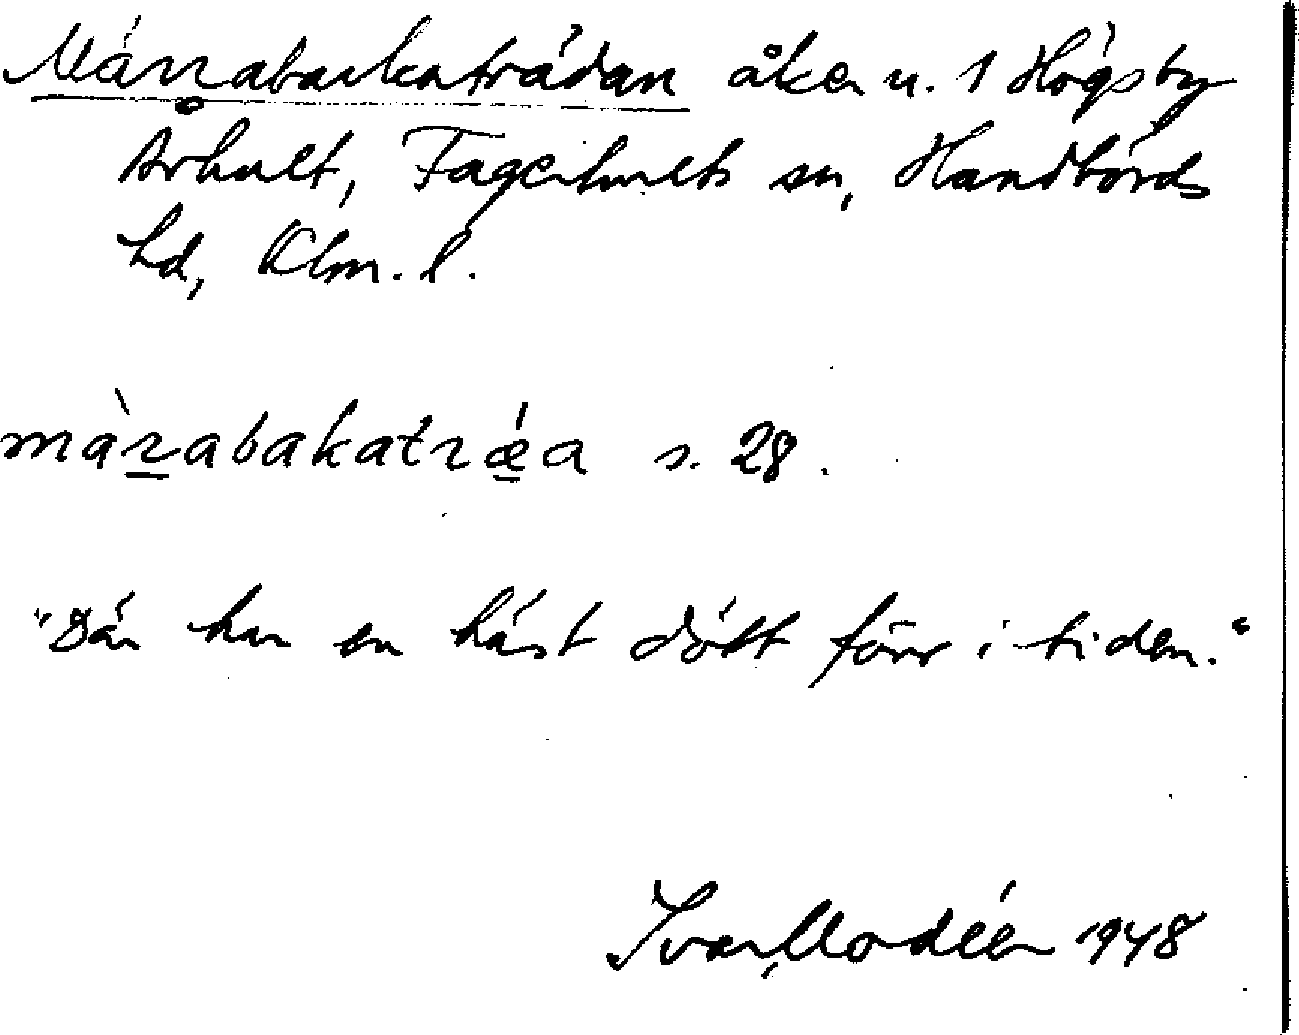 Märrabackaträdan åker u. 1 Högsby
Århult, Fagerhults sn, Handbörds
hd, Klm. l.
màrabakatrǽa s. 28.
"Där har en häst dött förr i tiden."
Ivar Modéer 1948